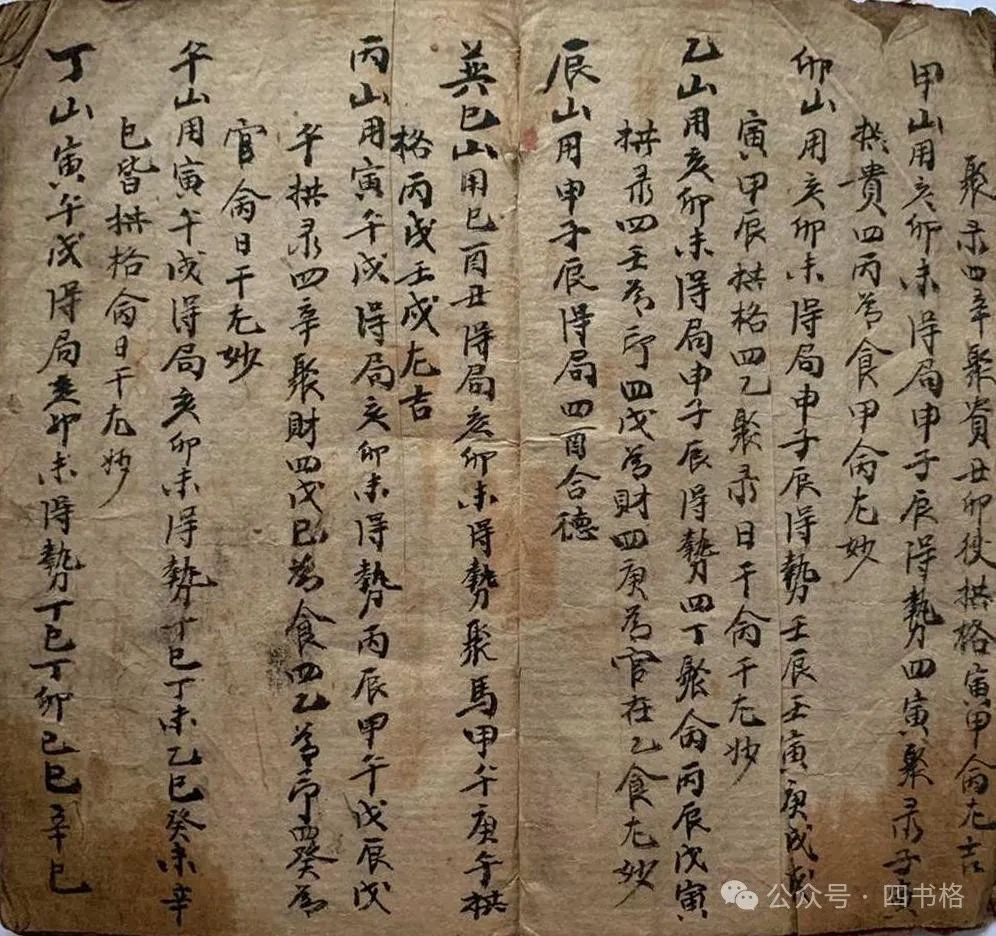 聚彔四辛聚貴丑卯彼拱格寅甲侖尤吉
甲山用亥卯未得局申子辰得勢四寅聚彔子
拱貴四丙為食甲侖丙尤妙
卯山用亥卯未得局申子辰得勢壬辰壬寅庚戌
寅甲辰拱格四乙聚彔日干侖干尤妙
乙山用亥卯未得局申子辰得勢四丁聚侖丙辰戊寅
拱彔四壬為印四戊為財四庚為官在乙食尤妙
辰山用申子辰得局四酉合德
巽巳山用巳酉丑得局亥卯未得勢聚馬甲午庚午拱
格丙戌壬戌尤吉
丙山用寅午戌得局亥卯未得勢丙辰甲午戊辰戊
午拱彔四辛聚財四戊巳為食四乙為印四癸為
官侖日干尤妙
午山用寅午戌得局亥卯未得勢丁巳丁未乙巳癸未辛
巳皆拱格侖日干尤妙
丁山寅午戌得局亥卯未得勢丁巳丁卯己巳辛巳
公众号·四书格